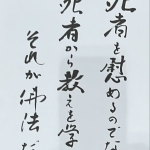 死者を慰めるのでな
死者から教えを学
それが佛法だ